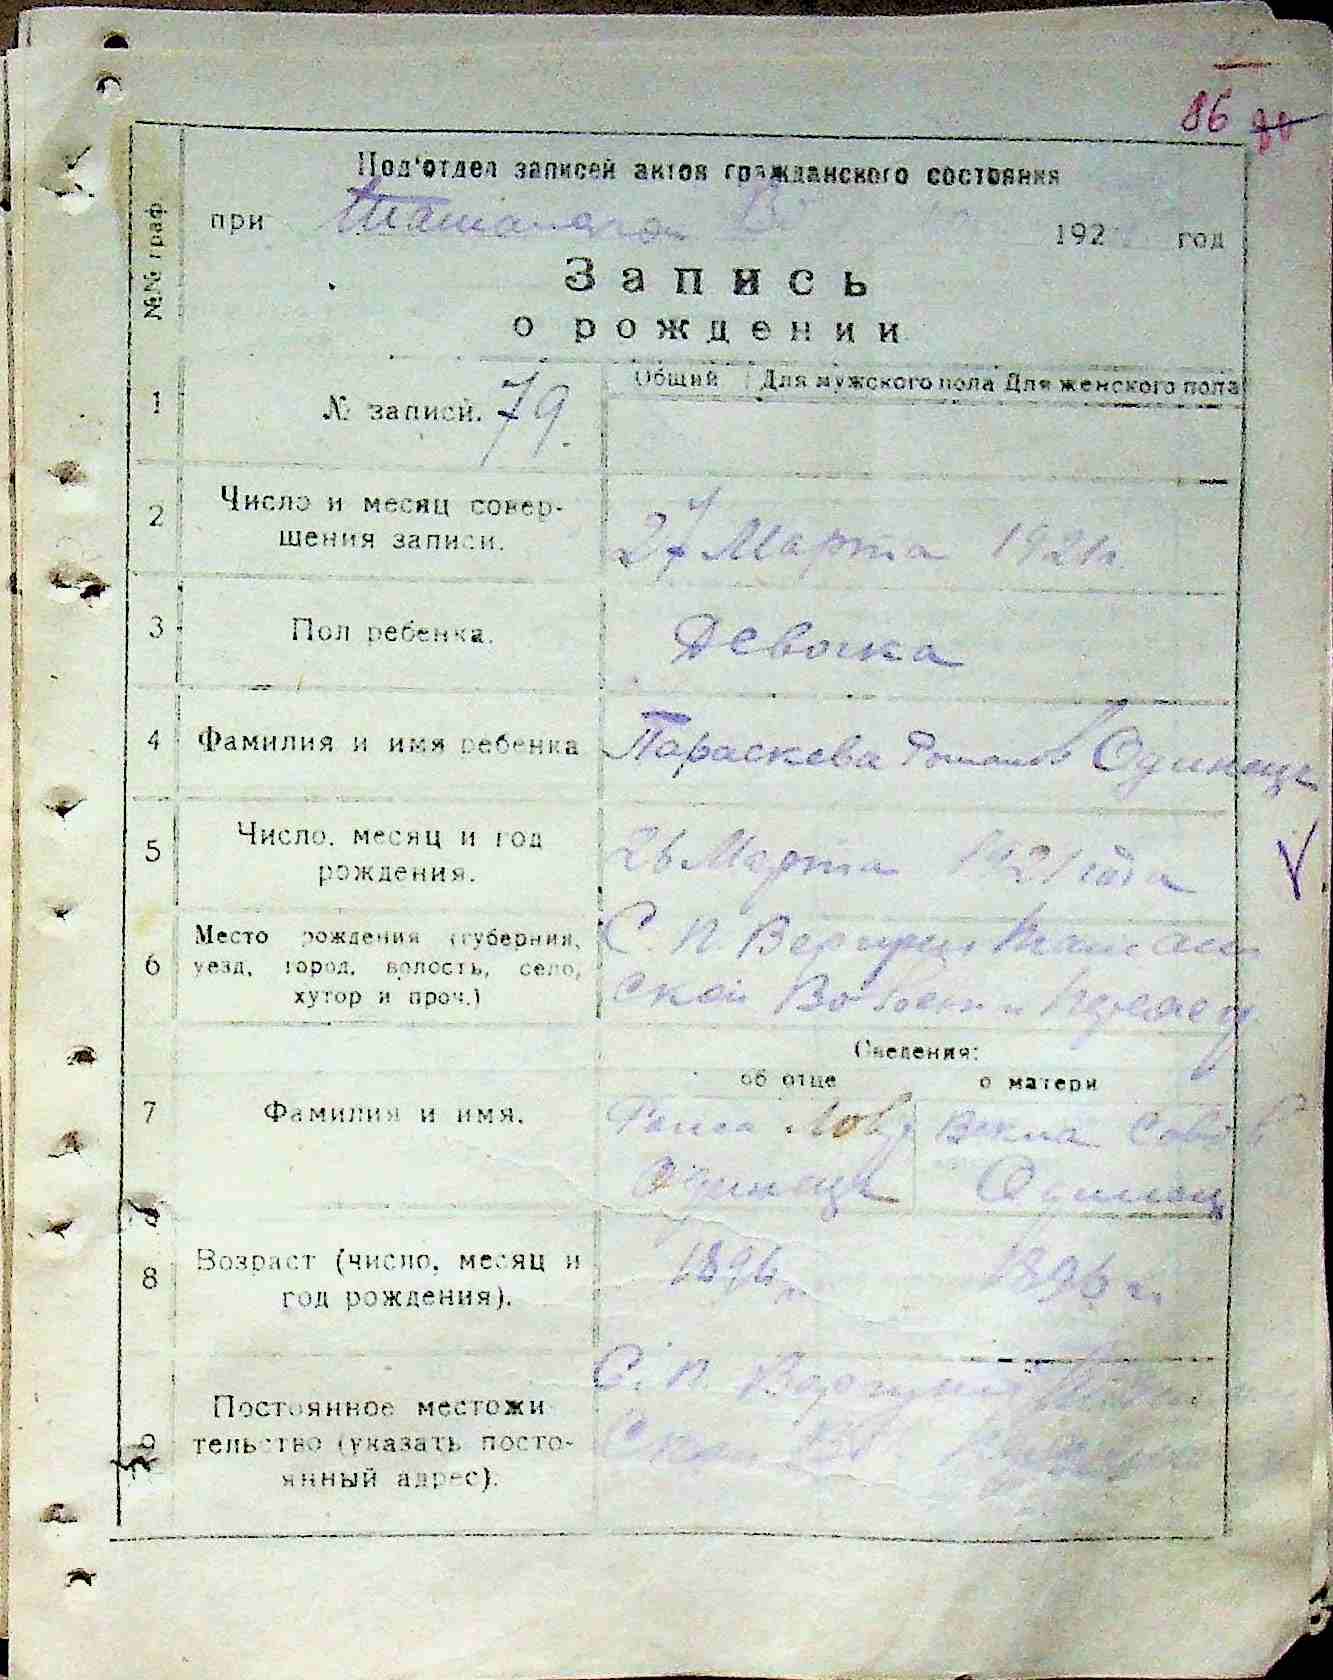 86 90
Под'отдел записей актов гражданского состояния
при 192 год
№№ граф
Запись
о рождении
1 № записи. 79. Общий Для мужского пола Для женского пола
2 Число и месяц совер-
шения записи.
27 Марта 1921 г.
3 Пол ребенка. Девочка
4 Фамилия и имя ребенка Параскева Романов Одинець
5 Число, месяц и год
рождения.
26 Марта 1921 года
6 Место рождения (губерния,
уезд, город, волость, село,
хутор и проч.)
С. П. Вергуны
ской
Сведения:
об отце о матери
7 Фамилия и имя.
Одинець Одинец
8 Возраст (число, месяц и
год рождения).
1896 г. 1896 г.
9 Постоянное местожи
тельство (указать посто-
янный адрес).
С. П. Вергуны
ской